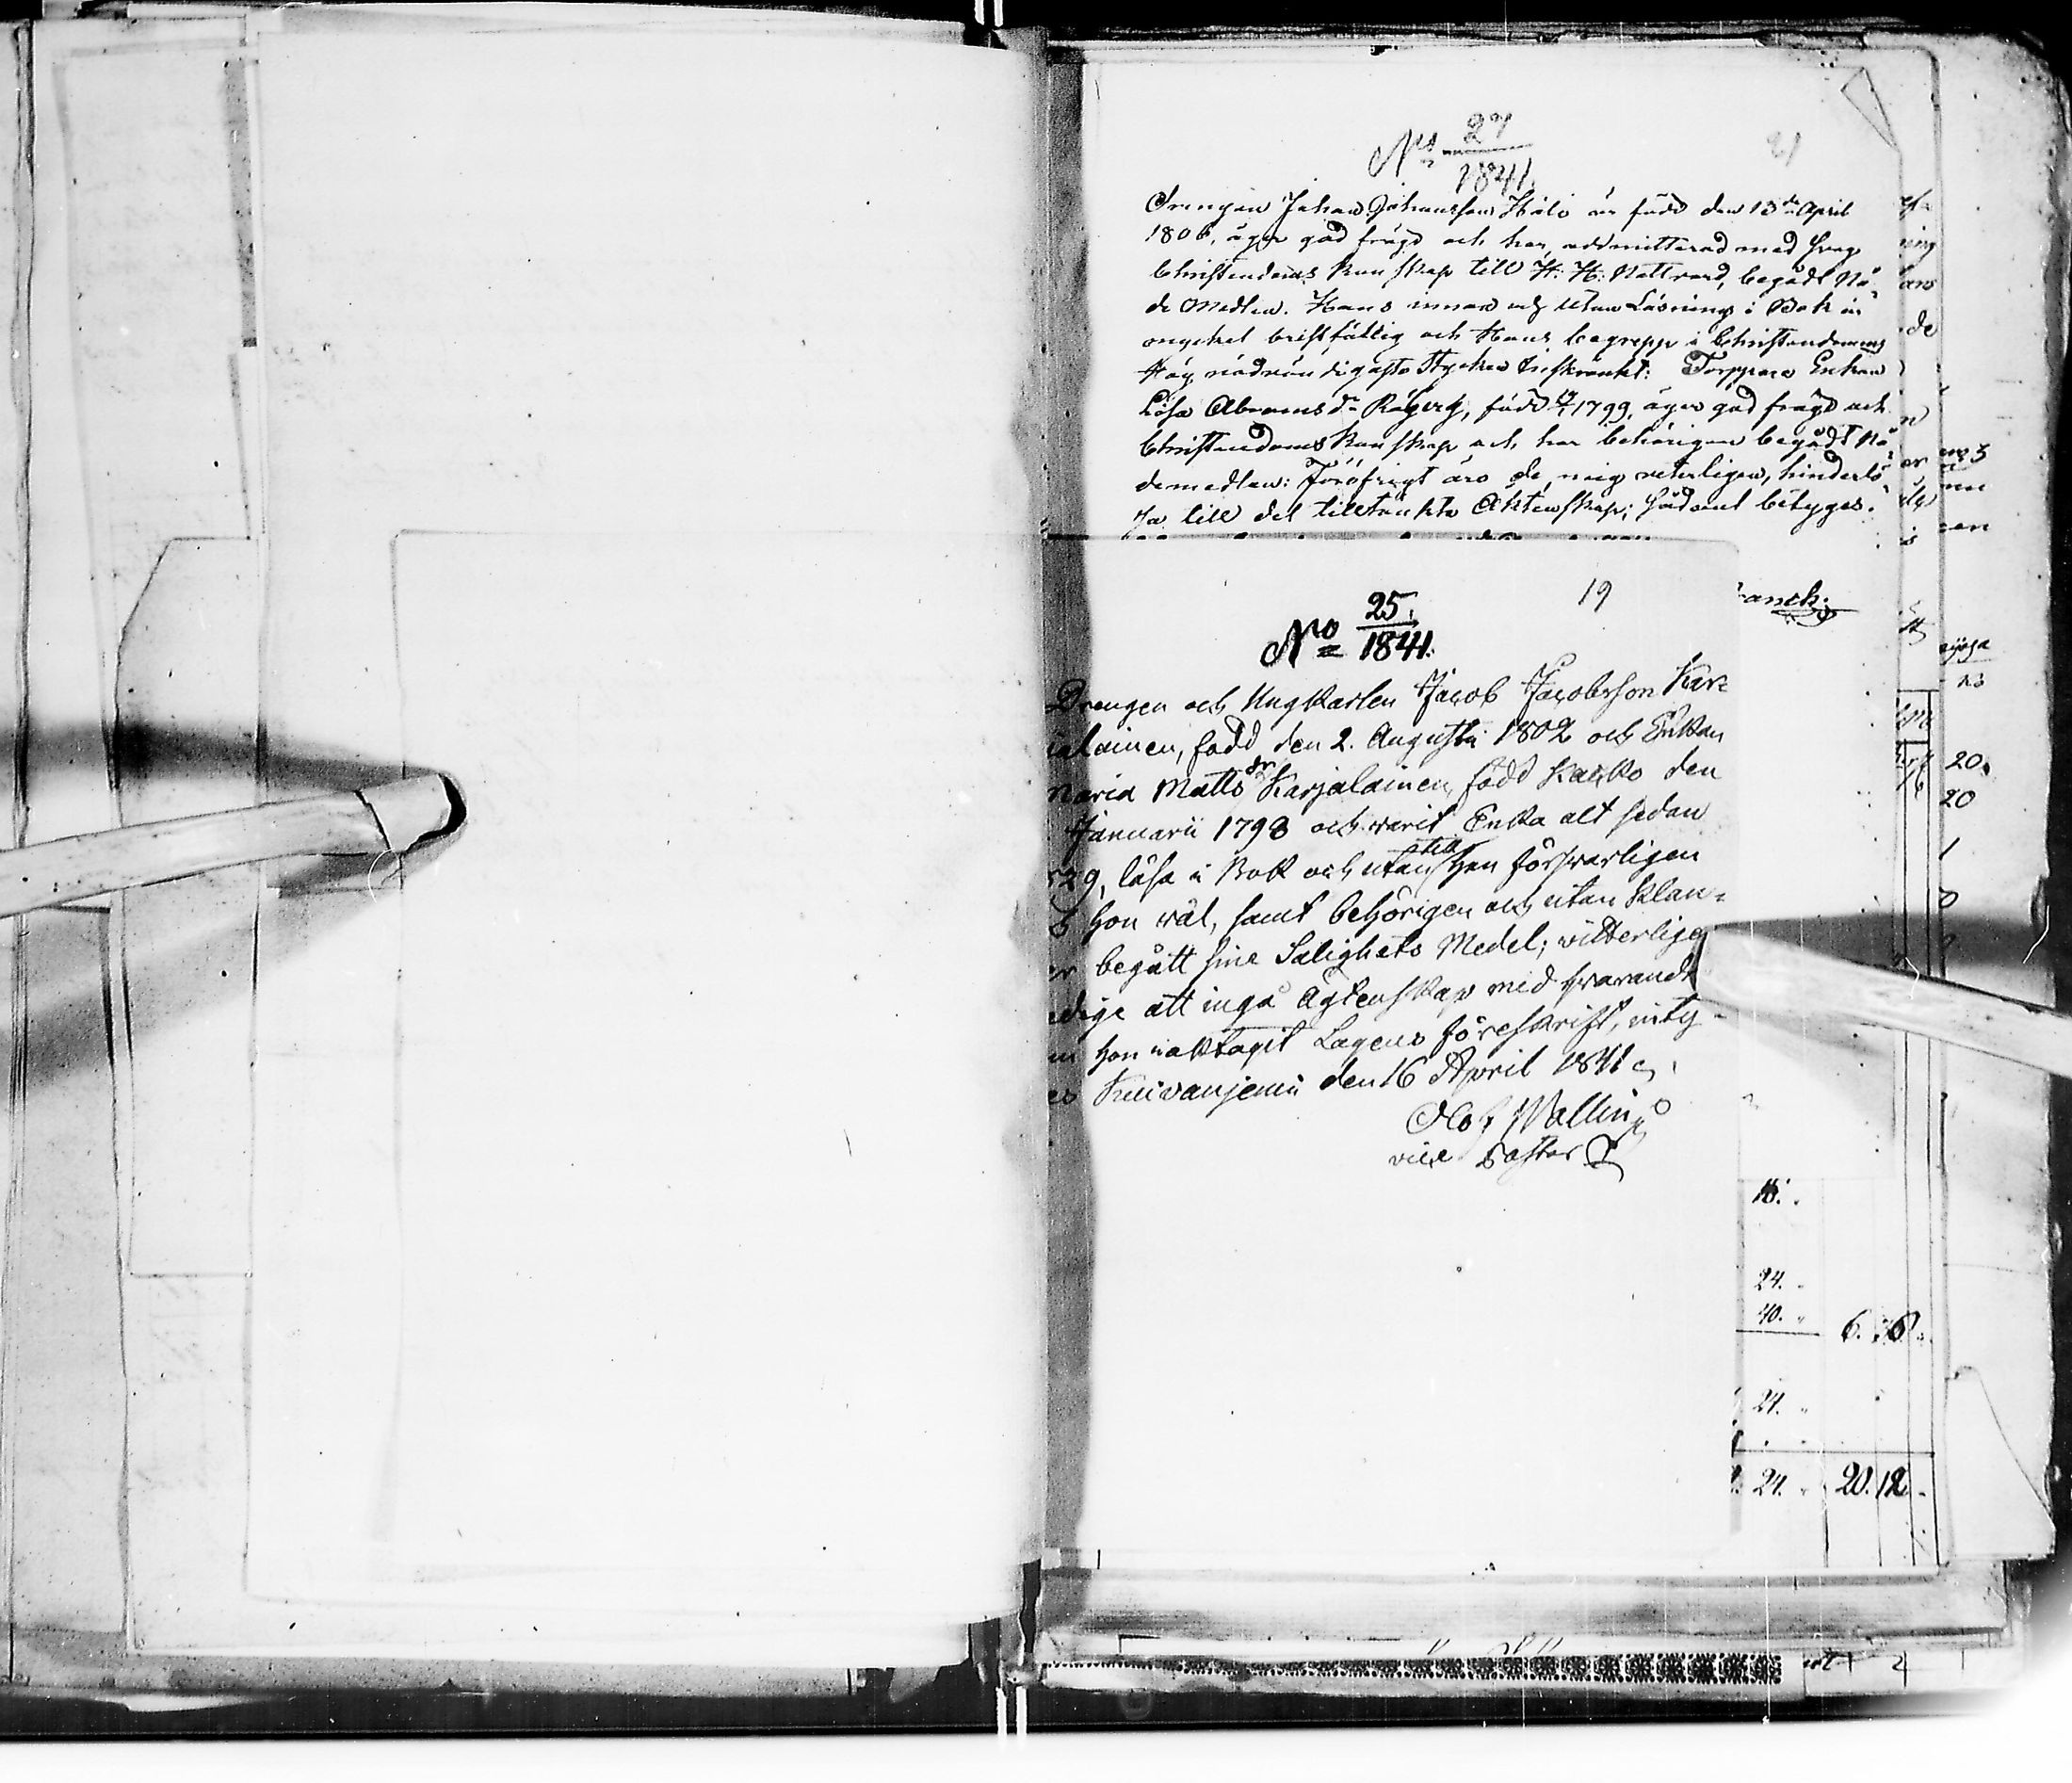 27
No 1841.
21
Drengen Johan Johansson Halo är född den 13de April
1806, äger god frägd och har admitterad med svag
Christendoms kunskap till H. H. Nattvard, begådt Nå-
de Medlen. Hans innan och utan Läsning i Bok är
mycket bristfällig och Hans begrepp i Christendomens
nödvändigaste stycken inskränkt: Torppare Enkan
Lisa Abramsdr född 1799, äger god frägd och
Christendoms kunskap och har behörigen begådt Nå-
demedlen: Föröfrigt äro de, mig veterligen, hinderlö-
sa till det tilltänkta Äktenskap; sådant betyges.
anck.
19
25.
No 1841.
Drengen och Ungkarlen Jacob Jacobsson Kar-
ialainen, född den 2. Augusti 1802 och Enkan
Maria Matts dr Karjalainen, född Kauko den
Januarii 1798 och warit Enka alt sedan
29, läsa i Bok och utantill han förswarligen
hon wäl, samt behörigen och utan klan-
er begått sine Salighets Medel; witterligen
edige att ingå Ägtenskap med hwarandra
m hon iakttagit Lagens föreskrift, inty-
es Kuivaniemi den 16 April 1841
Olof Wallin
vice Pastor
20.
20
1
0
18.
24.
40.
6. 36
24.
24. 20. 12